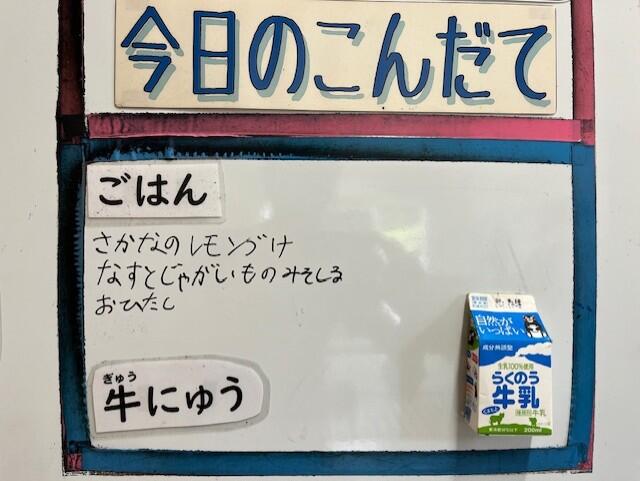 今日のこんだて
ごはん
さかなのレモンづけ
なすとじゃがいものみそしる
おひたし
ぎゅう
牛にゅう
自然が
いっぱい
成分無調整
生乳100%使用
らくのう
牛乳
種類別牛乳
200ml